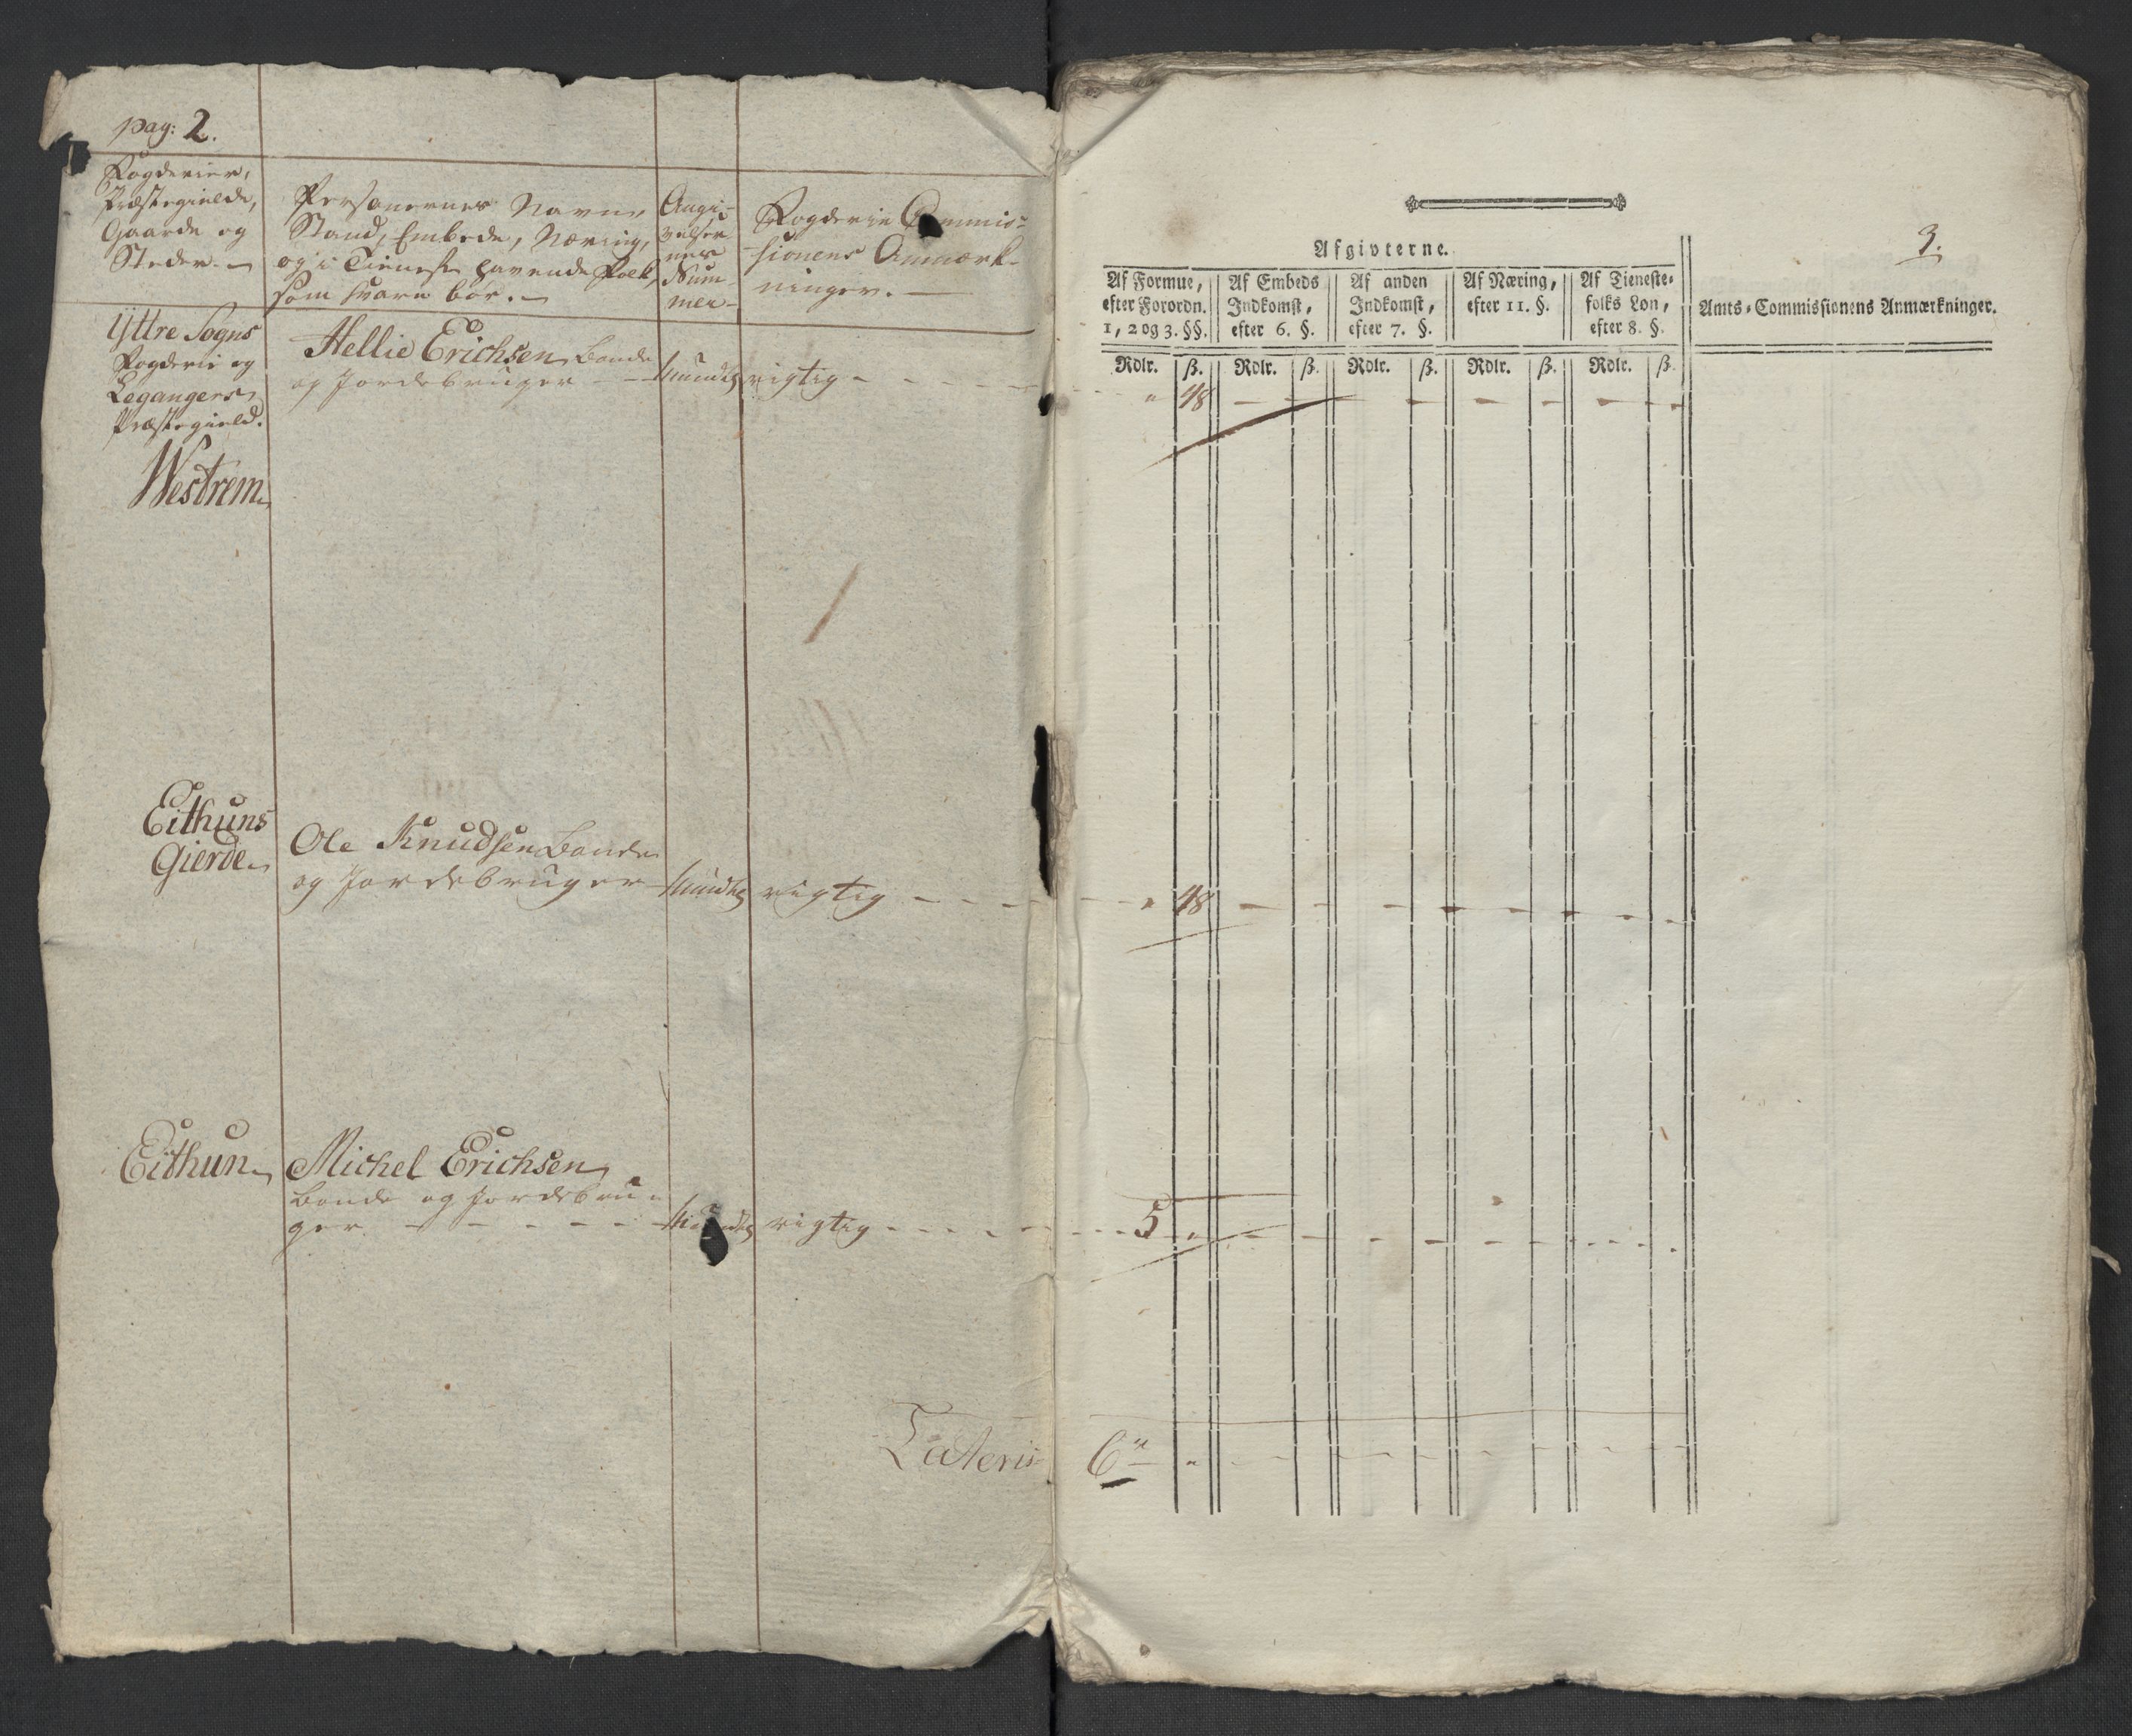 pag: 2.
Fogderier,
Præstegielde,
Gaarde og
Steder. –
Personernes Navne,
Stand, Embede, Næring,
og i Tieneste havende Folk,
som svare bör. –
Angi-
velser
nes
Num-
mer –
Fogderie Commis-
sionens Anmærk-
ninger. –
Yttre Sogns
Fogderie og
Legangers
Præstegield.
Westrem
Hellie Erichsen Bonde
og Jordebruger – – mundtlig rigtig – – – – – „ 48 – – – – – – –
Eithuns
Gierde
Ole Knudsen Bonde
og Jordebruger – mundtlig rigtig – – – – – „ 48 – – – – – – – –
Eithun
Michel Erichsen
Bonde og Jordebru-
ger – – – – – mundtlig rigtig – – – – – 5 „ – – – – – – – –
Lateris 6 „ – – – – – – – –
3.
Afgivterne.
Af Formue,
efter Forordn.
1, 2 og 3. §§.
Af Embeds
Indkomst,
efter 6. §.
Af anden
Indkomst,
efter 7. §.
Af Næring,
efter 11. §.
Af Tieneste-
folks Løn,
efter 8. §.
Amts-Commissionens Anmærkninger.
Rdlr. ß. Rdlr. ß. Rdlr. ß. Rdlr. ß. Rdlr. ß.